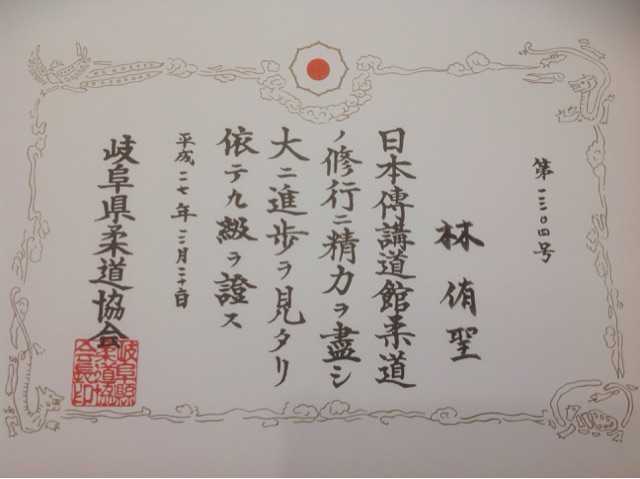 第一三〇四号
林 侑聖
日本傳講道館柔道
ノ修行ニ精力ヲ盡シ
大ニ進歩ヲ見タリ
依テ九級ヲ證ス
平成二七年三月二十日
岐阜県柔道協会
岐阜縣柔道協会長印